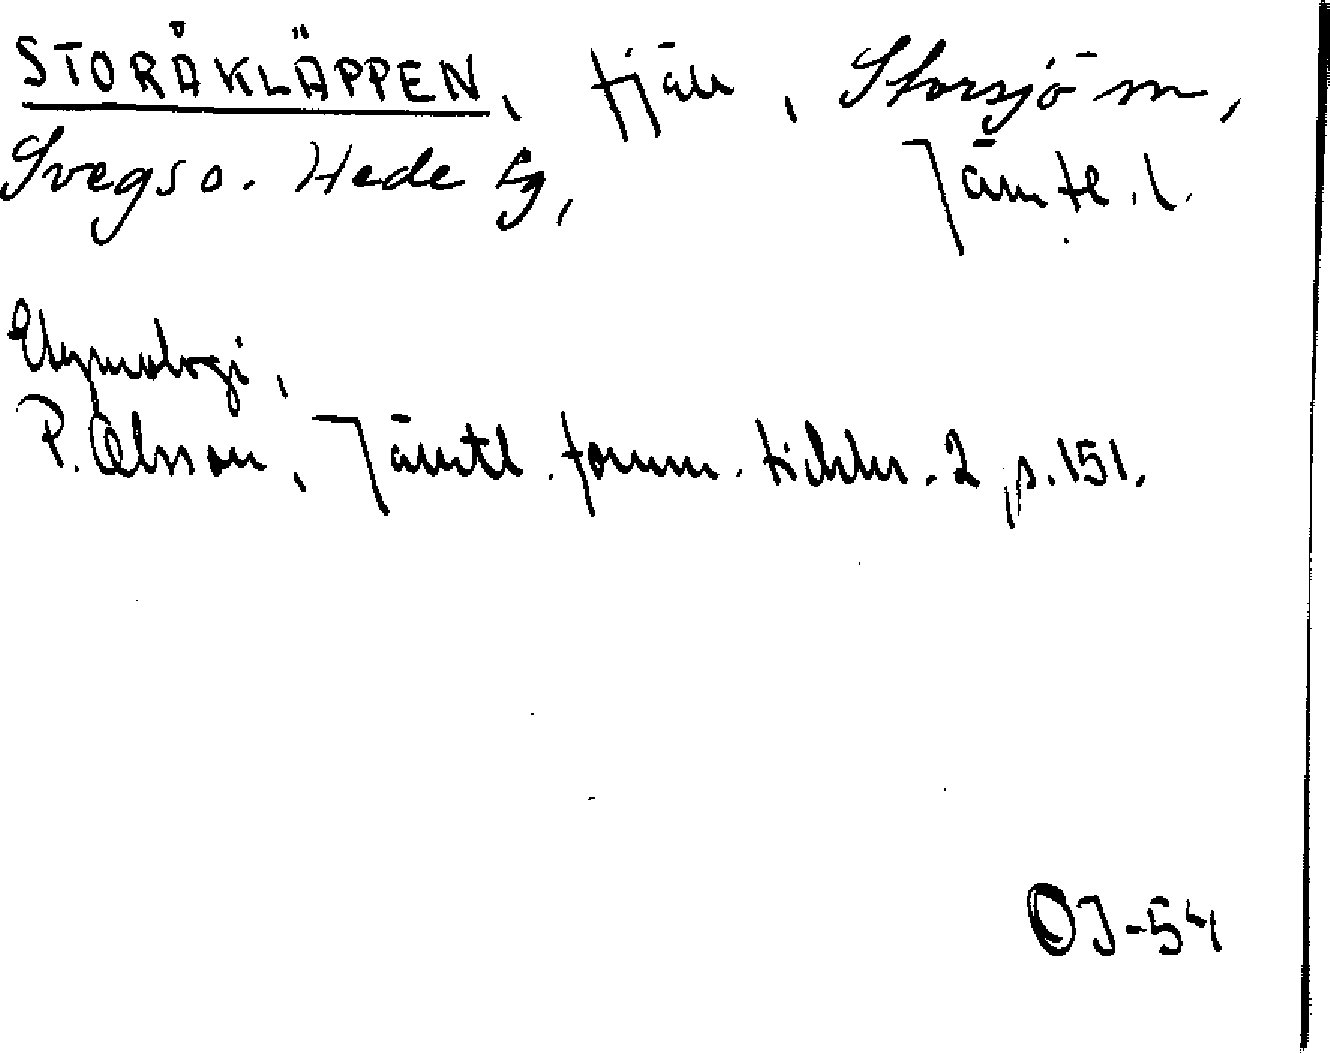 STORÅKLÄPPEN, fjäll, Storsjö m,
Svegs o. Hede tg, Jämtl. l.
Etymologi,
P. Olsson, Jämtl. fornm. tidskr. 2, s. 151.
OJ-54